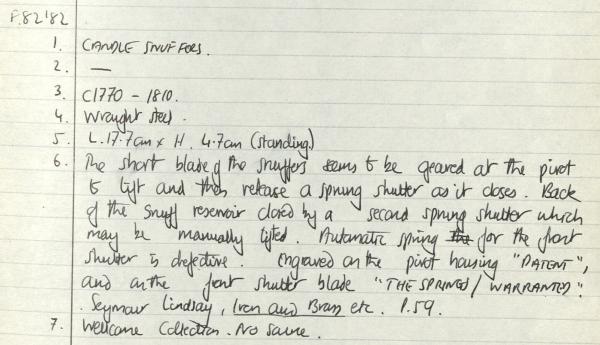 F.82'82
1. CANDLE SNUFFERS.
2. —
3. C1770 - 1810.
4. Wrought steel.
5. L. 17.7cm x H. 4.7cm (standing)
6. The short blade of the snuffers seems to be geared at the pivot
to lift and then release a sprung shutter as it closes. Back
of the snuff reservoir closed by a second sprung shutter which
may be manually lifted. Automatic spring for the front
shutter is defective. Engraved on the pivot housing "PATENT",
and on the front shutter blade "THE SPRINGS / WARRANTED".
. Seymour Lindsay, Iron and Brass etc. P.59.
7. Wellcome Collection. No Source.